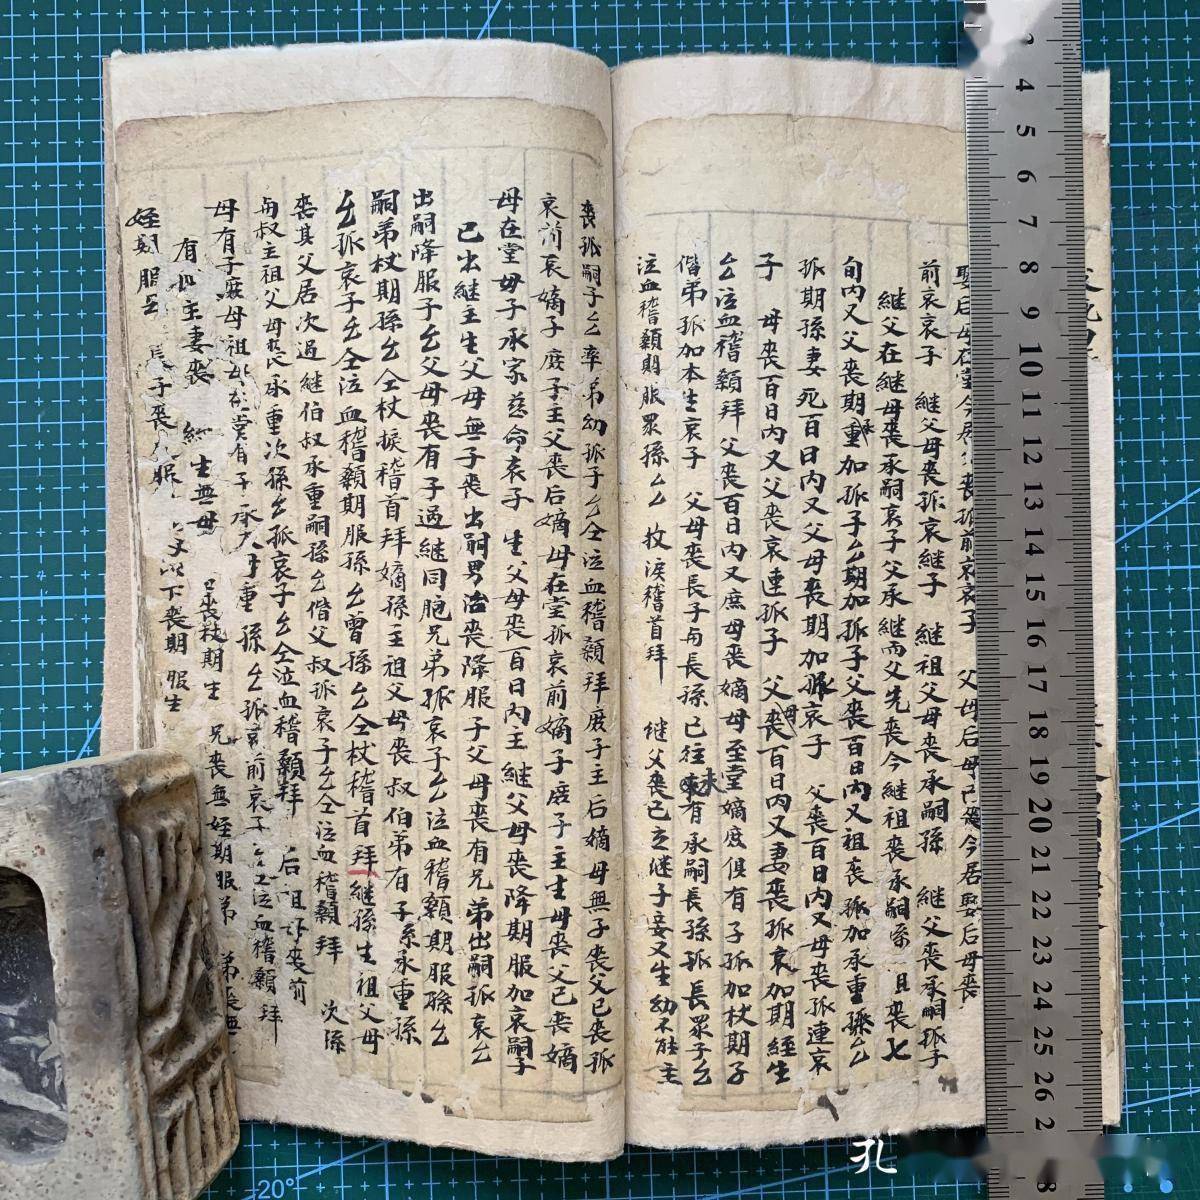 娶后母在堂今居父喪孤前哀哀子 父母后母已喪今居娶后母喪
前哀哀子 継父母喪孤哀継子 継祖父母喪承嗣孫 継父喪承嗣孤子
継父在継母喪承嗣哀子父承継而父先喪今継祖喪承嗣孫 且喪七
旬内又父喪期重加孤子么期加孤子父喪百日内又祖喪孤加承重孫么
孤期孫妻死百日内又父母喪期加服哀子 父喪百日内又母喪孤連哀
子 母喪百日内又父喪哀連孤子 父喪百日内又妻喪孤哀加期経生
么泣血稽顙拜 父喪百日内又庶母喪嫡母至堂嫡庶俱有子孤加杖期子
偕弟孤加本生哀子 父母喪長子与長孫已往未有承嗣長孫孤長眾子么
泣血稽顙期服眾孫么么 抆淚稽首拜 継父喪已立継子妾又生幼不能主
喪孤嗣子么率弟幼孤子么仝泣血稽顙拜庶子主后嫡母無子喪父已喪孤
哀前哀嫡子 庶子主父喪后嫡母在堂孤哀前嫡子庶子主生母喪父已喪嫡
母在堂毋子承家慈命哀子 生父母喪百日内主継父母喪降期服加哀嗣子
已出継主生父母無子喪出嗣男治喪降服子父母喪有兄弟出嗣孤哀么
出嗣降服子么父母喪有子過継同胞兄弟孤哀子么泣血稽顙期服孫么
嗣弟杖期孫么仝杖捩稽首拜嫡孫主祖父母喪叔伯弟有子孫承重孫
么孤哀子么仝泣血稽顙期服孫么曾孫么仝杖稽首拜継孫生祖父母
喪其父居次過継伯叔承重嗣孫么偕父叔孤哀子么仝泣血稽顙拜 次孫
与叔主祖父母喪承重次孫么孤哀子么仝泣血稽顙拜 后祖母喪前
母有子庶母祖母在堂有子承大母重孫么孤哀前哀子么仝泣血稽顙拜
有 主妻喪 生無母 喪杖期生 兄喪無姪期服弟 弟喪無
姪期服 長子喪 服 父以下喪期服生
孔
3
4
5
6
7
8
9
10
11
12
13
14
15
16
17
18
19
20
21
22
23
24
25
26
20°